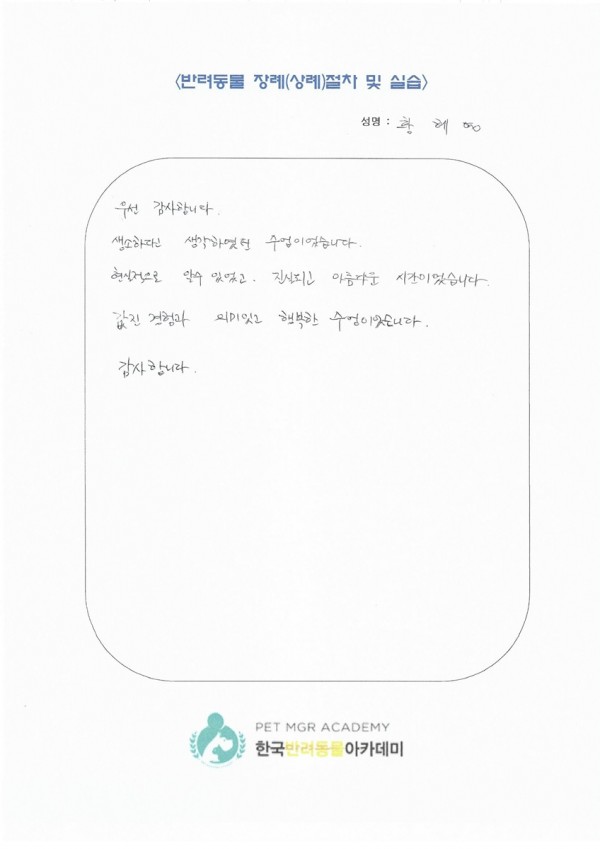 <반려동물 장례(상례)절차 및 실습>
성명 : 황 혜
우선 감사합니다.
생소하다고 생각하였던 수업이었습니다.
현실적으로 알수 있었고. 진실되고 아름다운 시간이었습니다.
값진 경험과 의미있고 행복한 수업이었습니다.
감사합니다.
PET MGR ACADEMY
한국반려동물아카데미